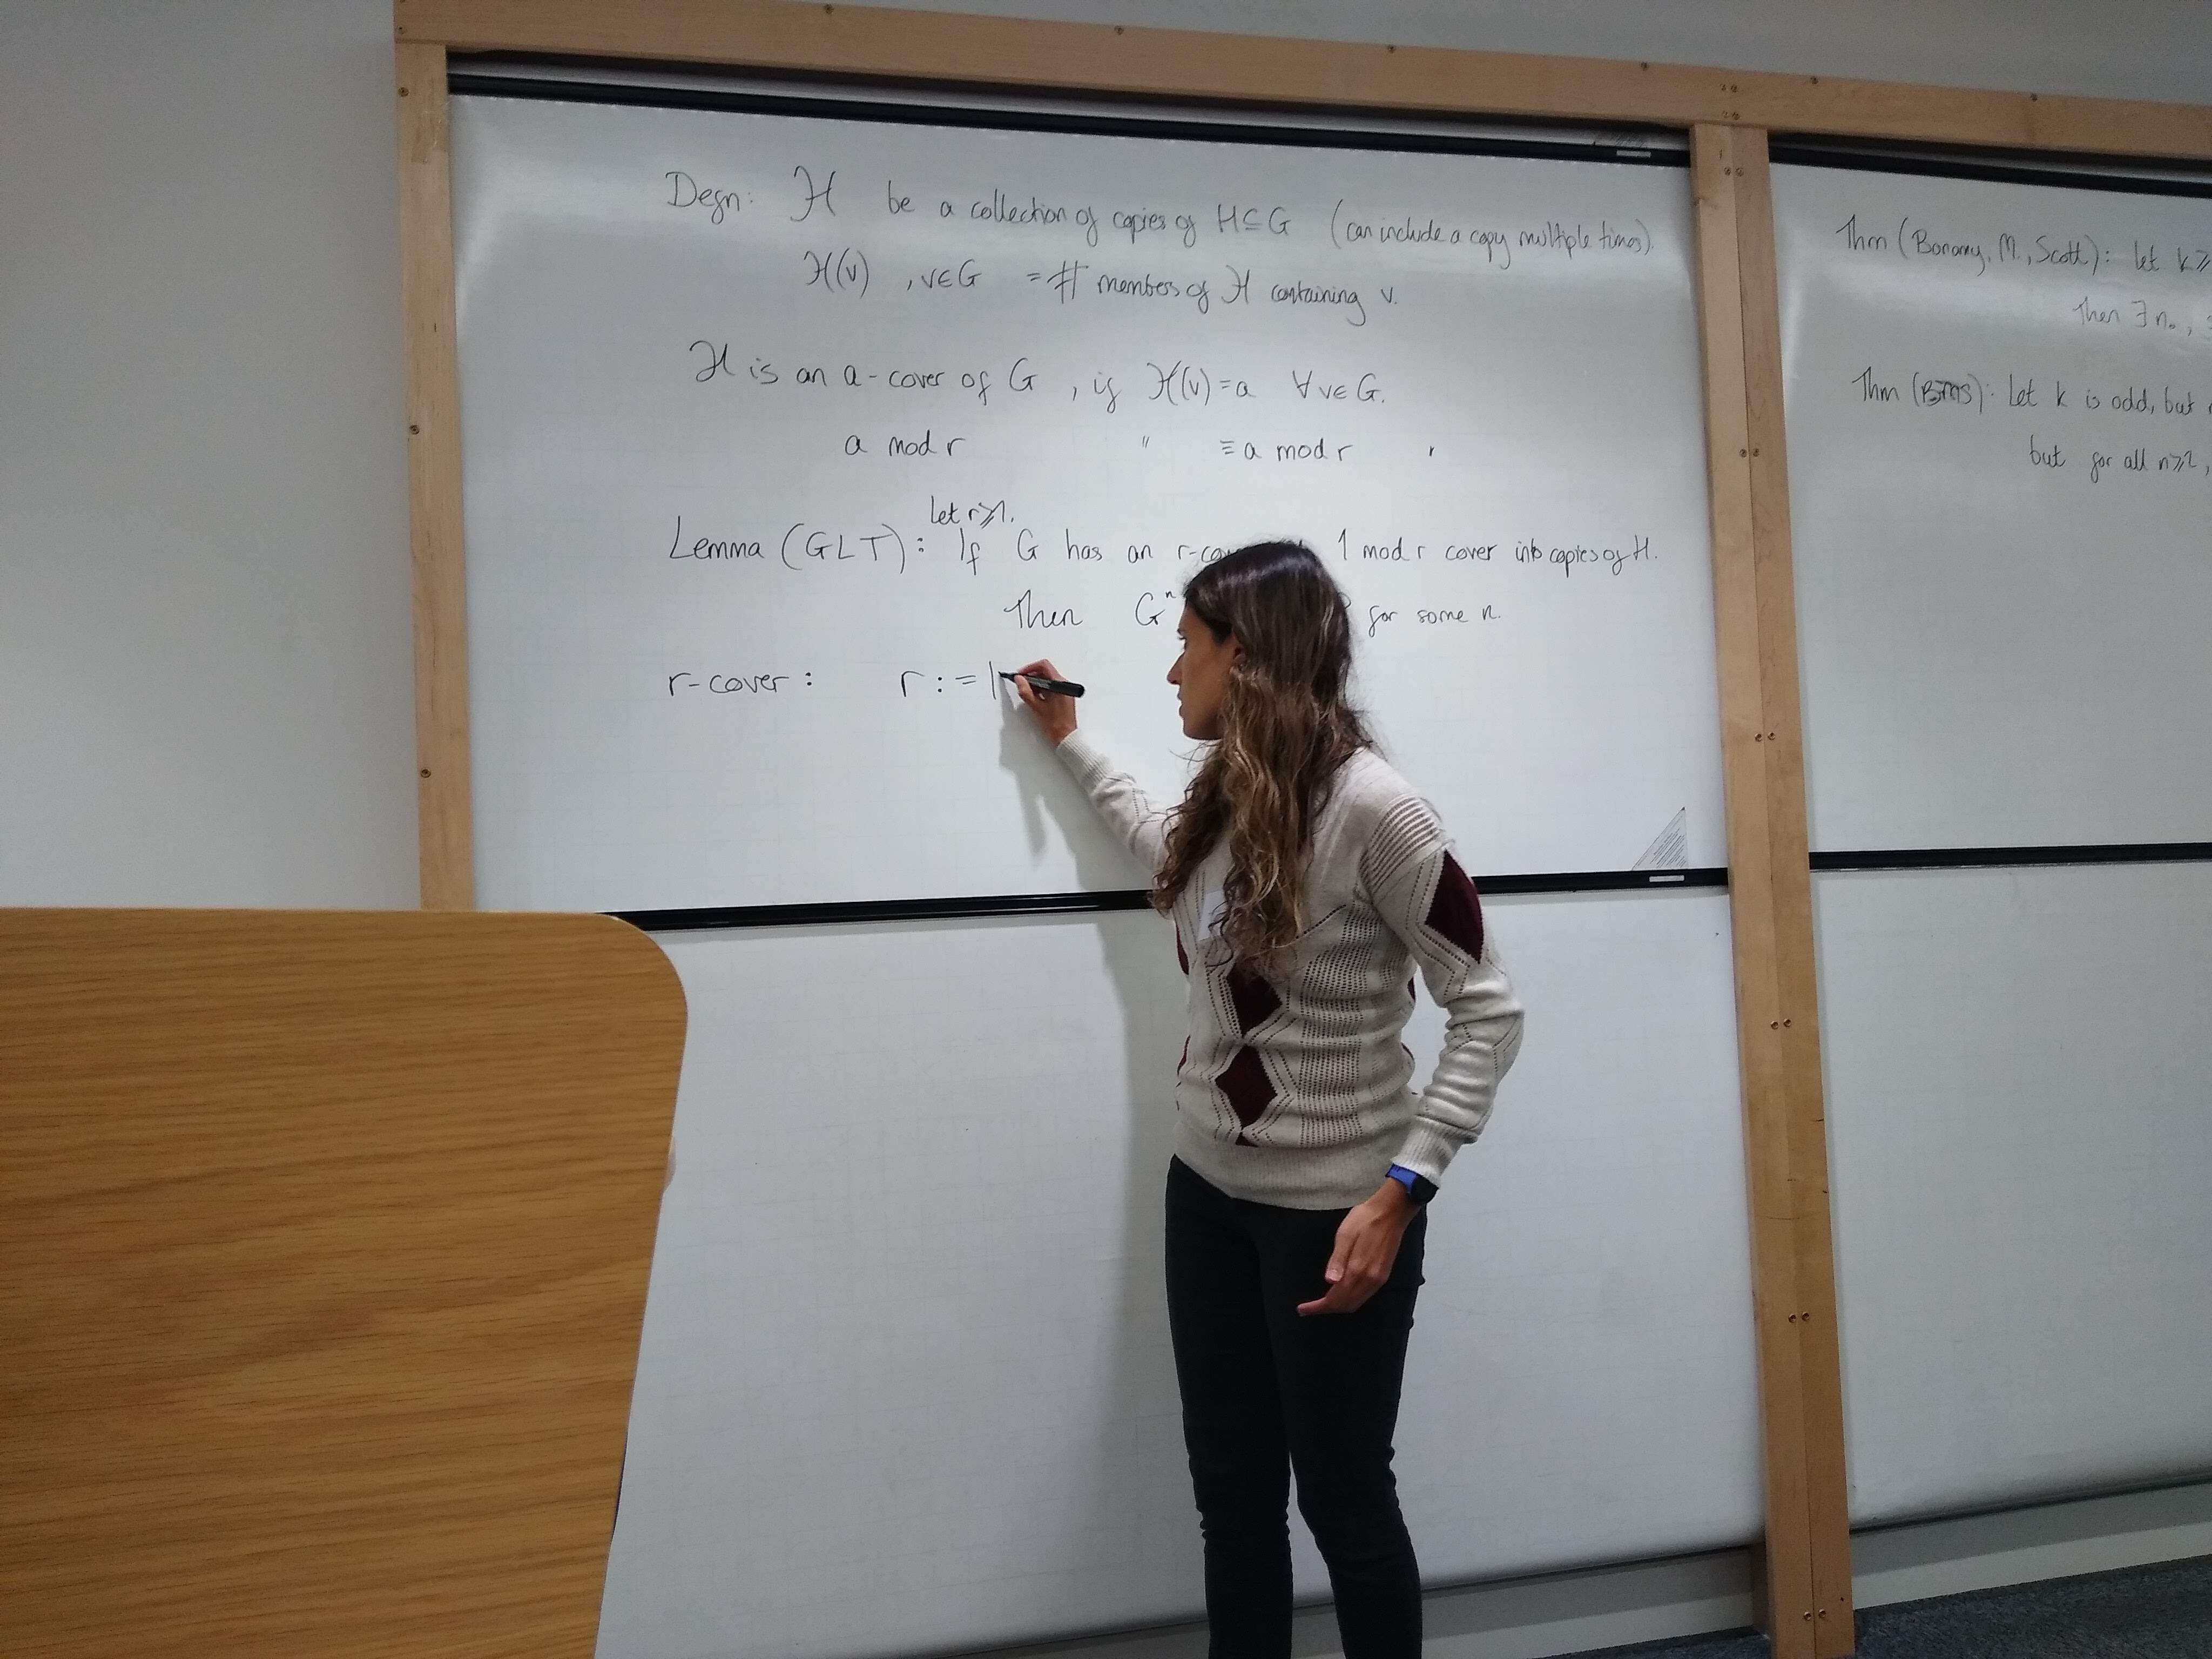 Defn: H be a collection of copies of H⊆G (can include a copy multiple times).
H(v) , v∈G = # members of H containing v.
H is an a-cover of G , if H(v)=a ∀v∈G.
a mod r " ≡a mod r "
let r≥1.
Lemma (GLT): If G has an r-cover 1 mod r cover into copies of H.
Then Gⁿ for some n.
r-cover: r:=|
Thm (Bonamy, M., Scott): let k≥
Then ∃n₀,
Thm (BMS): Let k is odd, but
but for all n≥2,